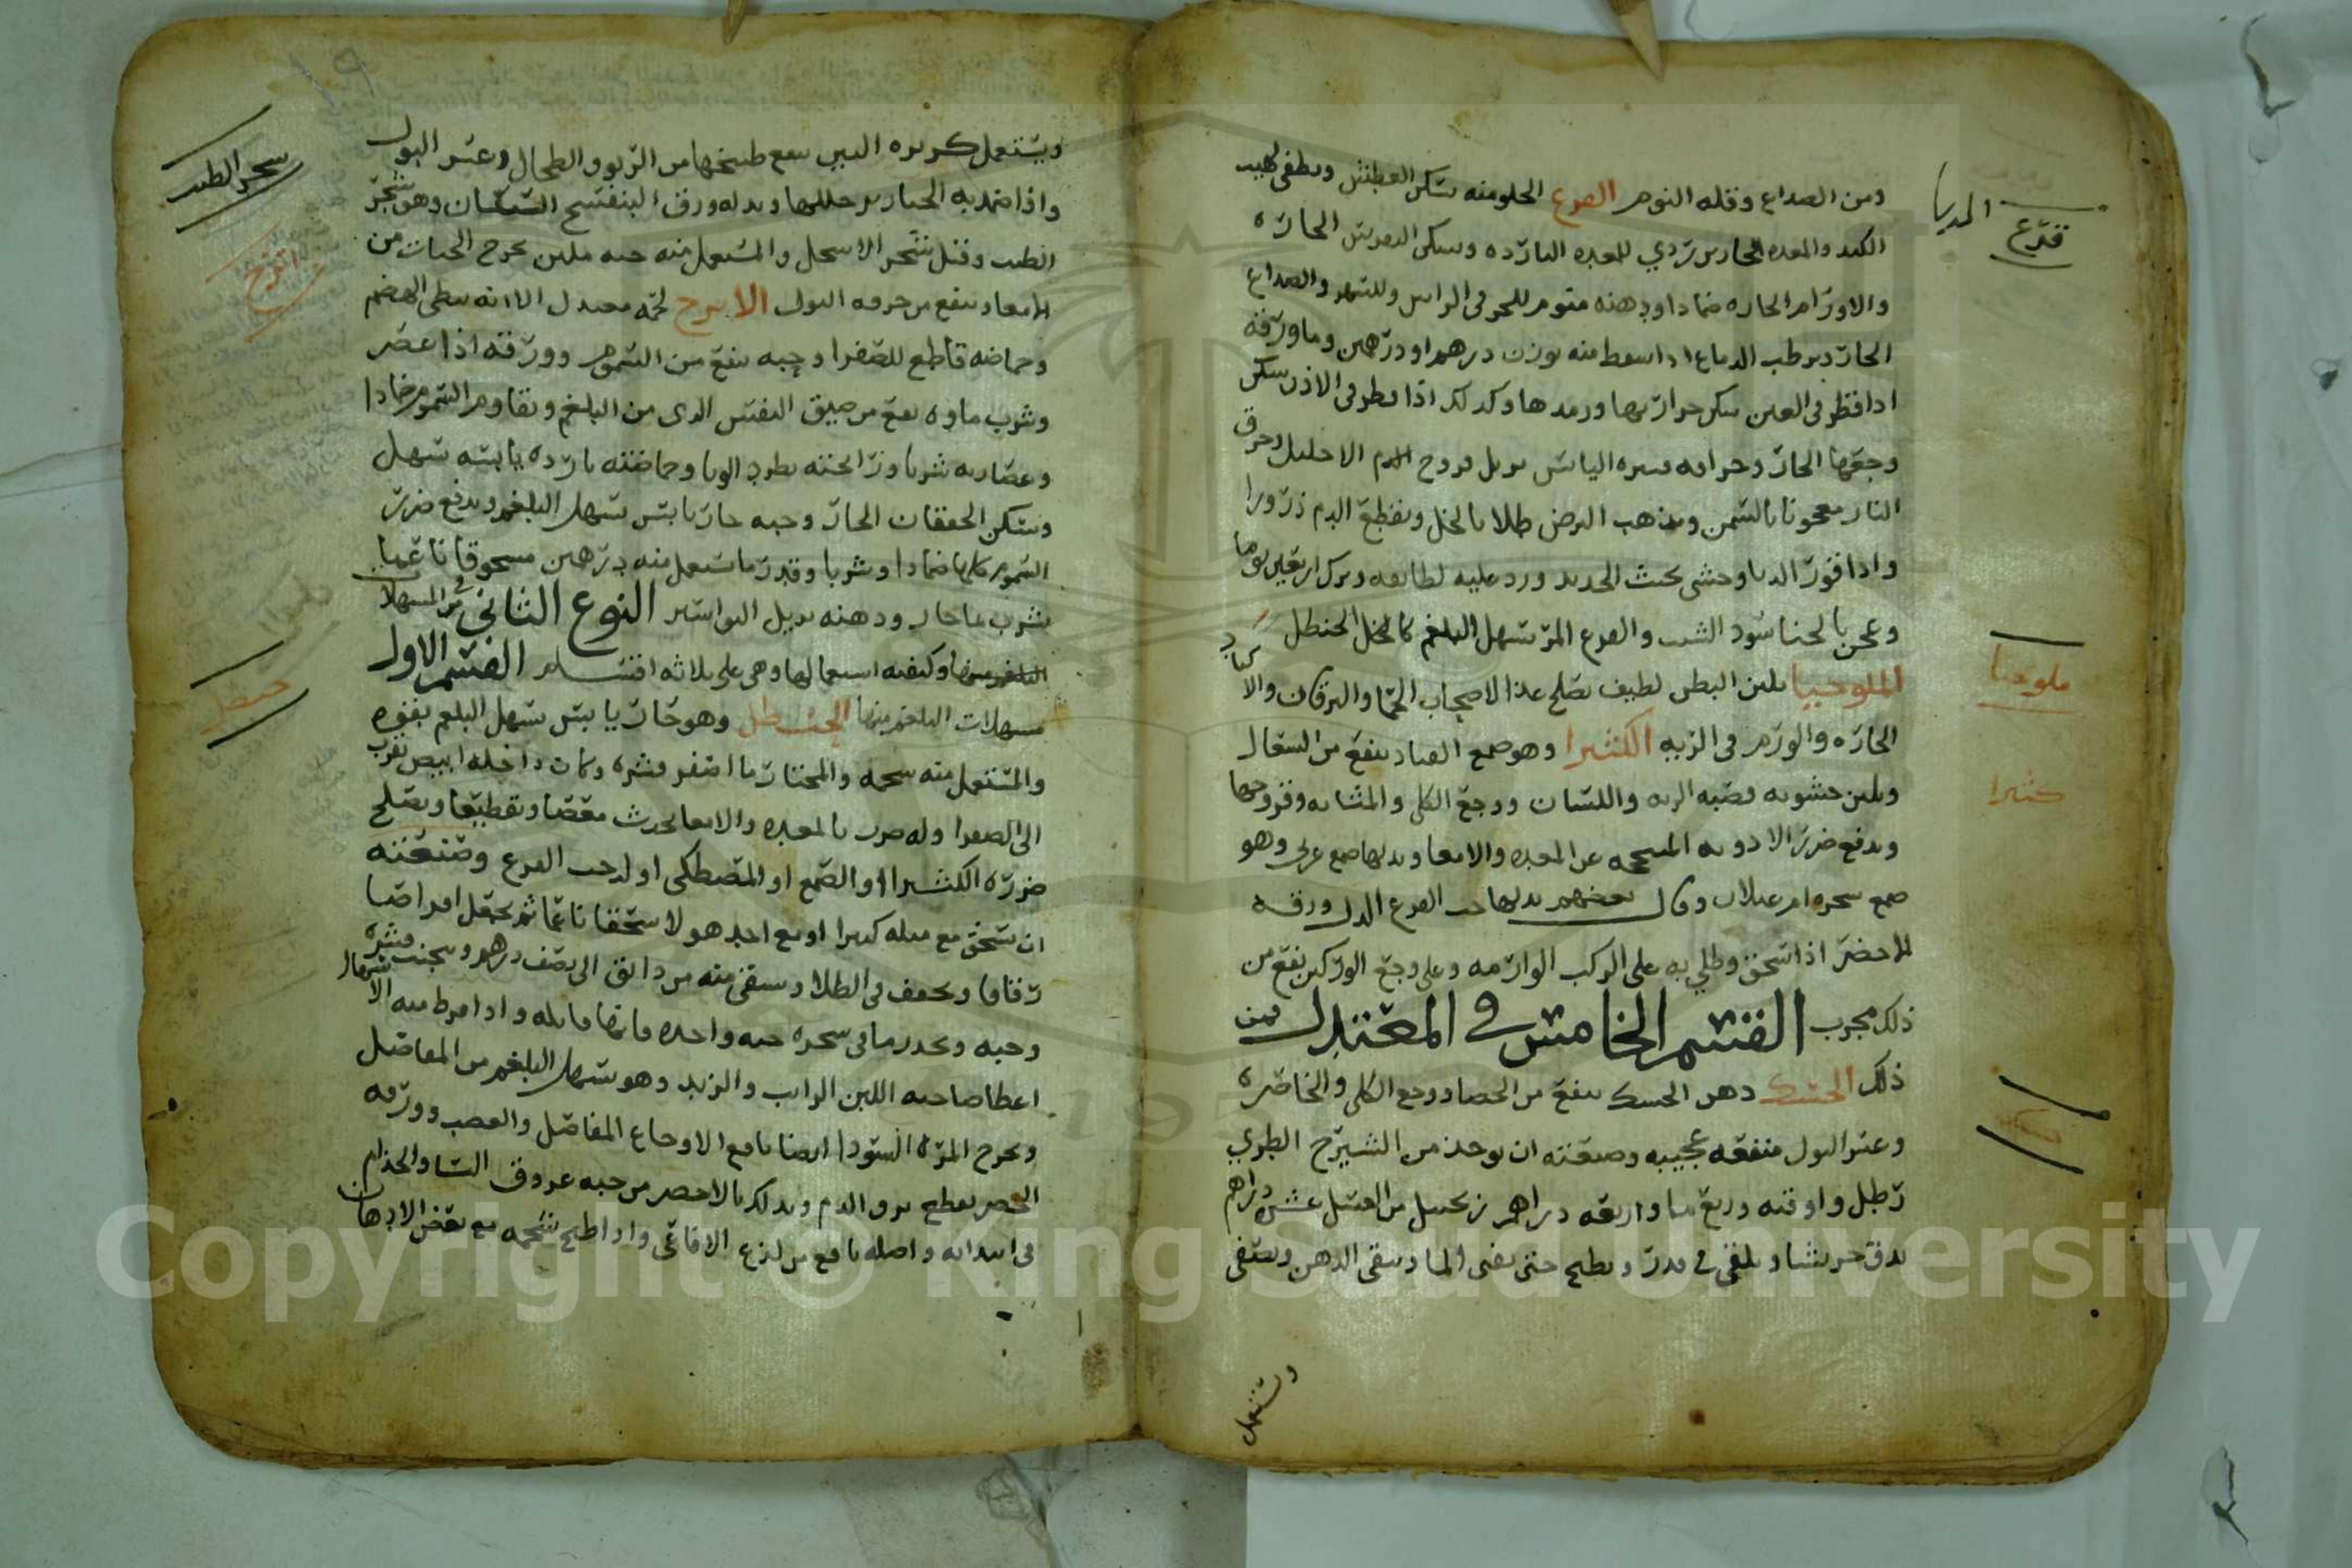 ومن الصداع وقله النوم القرع الحلو منه يسكن العطش ويطفي لهيب
الكبد والمعده الحارين ردي للمعده البارده ويسكن النقرس الحاره
والاورام الحاره ضمادا ودهنه منوم للحر في الراس وللسهر والصداع
الحار ويرطب الدماغ اذا اسعط منه بوزن درهم او درهمين وما ورقه
اذا قطر في العين سكن حرارتها ورمدها وكذلك اذا قطر في الاذن سكن
وجعها الحار وحراقه قشره اليابس يزيل قروح الاحليل وحرق
النار معجونا بالسمن ويذهب البرص طلا بالخل ويقطع الدم ذرورا
واذا قور الدبا وحشي بخبث الحديد ورد عليه لطايفه وترك اربعين يوما
وعجن بالحنا سود الشيب والقرع المر يسهل البلغم كالخل الحنظل
الملوخيا يلين البطن لطيف يصلح غذا لاصحاب الحما واليرقان والاكباد
الحاره والورم في الريه الكثيرا وهو صمغ القتاد ينفع من السعال
ويلين خشونه قصبه الريه واللسان ووجع الكلى والمثانه وقروحها
ويدفع ضرر الادويه المسحجه عن المعده والامعا وبدلها صمغ عربي وهو
صمغ شجره ام غيلان وقال بعضهم بدلها حب القرع الدلب ورقه
الاخضر اذا سحق وطلي به على الركب الوارمه وعلى وجع الوركين نفع من
ذلك مجرب القسم الخامس في المعتدل فمن
ذلك الحسك دهن الحسك ينفع من الحصا ووجع الكلى والخاصره
وعسر البول منفعه عجيبه وصفته ان يوخذ من الشيرج الطري
رطل واوقيه وربع ما واربعه دراهم زنجبيل من العسل عشره دراهم
يدق جريشا ويلقى في قدر ويطبخ حتى يفنى الما ويبقى الدهن ويصفى
ويستعمل
الدبا
قرع
ملوخيا
كثيرا
حسك
ويستعمل كزبره البير ينفع طبيخها من الربو والطحال وعسر البول
واذا ضمد به الخنازير حللها وبدله ورق البنفسج السبستان وهو شجر
الطنب وقيل شجر الاسحل والمستعمل منه حبه ملين يخرج الحيات من
الامعا وينفع من حرقه البول الاترج لحمه معتدل الا انه بطي الهضم
وحماضه قاطع للصفرا وحبه ينفع من السموم وورقه اذا عصر
وشرب ماوه نفع من ضيق النفس الذي من البلغم ويقاوم السموم ضمادا
وعصارته شربا ورائحته يطرد الوبا وحماضته بارده يابسه تسهل
وتسكن الخفقان الحار وحبه حار يابس يسهل البلغم ويدفع ضرر
السموم كلها ضمادا وشربا وقدر ما يستعمل منه درهمين مسحوقا ناعما
يشرب بما حار ودهنه يزيل البواسير النوع الثاني في المسهلات
وكيفيه استعمالها وهي على ثلاثه اقسام القسم الاول
مسهلات البلغم منها الحنظل وهو حار يابس يسهل البلغم بقوه
والمستعمل منه شحمه والمختار ما اصفر قشره وكان داخله ابيض يقرب
الى الصفرا وله ضرب بالمعده والامعا يحدث مغصا وتقطيعا ويصلح
ضرره الكثيرا او الصمغ او المصطكى او لب حب القرع وصنعته
ان يسحق مع مثله كثيرا او مع احد هولا سحقا ناعما ثم يجعل اقراصا
رقاقا ويجفف في الظلا ويسقى منه من دانق الى نصف درهم ويجنب قشره
وحبه ويحذر ما في شجره حبه واحده فانها قاتله واذا افرط منه الاسهال
اعطا صاحبه اللبن الرايب والزبد وهو يسهل البلغم من المفاصل
ويخرج المره السودا ايضا نافع لاوجاع المفاصل والعصب وورقه
الخضر يقطع نزف الدم ويدلك بالاخضر من حبه عروق النسا والجذام
في ابتدائه واصله نافع من لدغ الافاعي واذا طبخ شحمه مع بعض الادهان
شجر الطنب
اترج
حنظل
Copyright © King Saud University